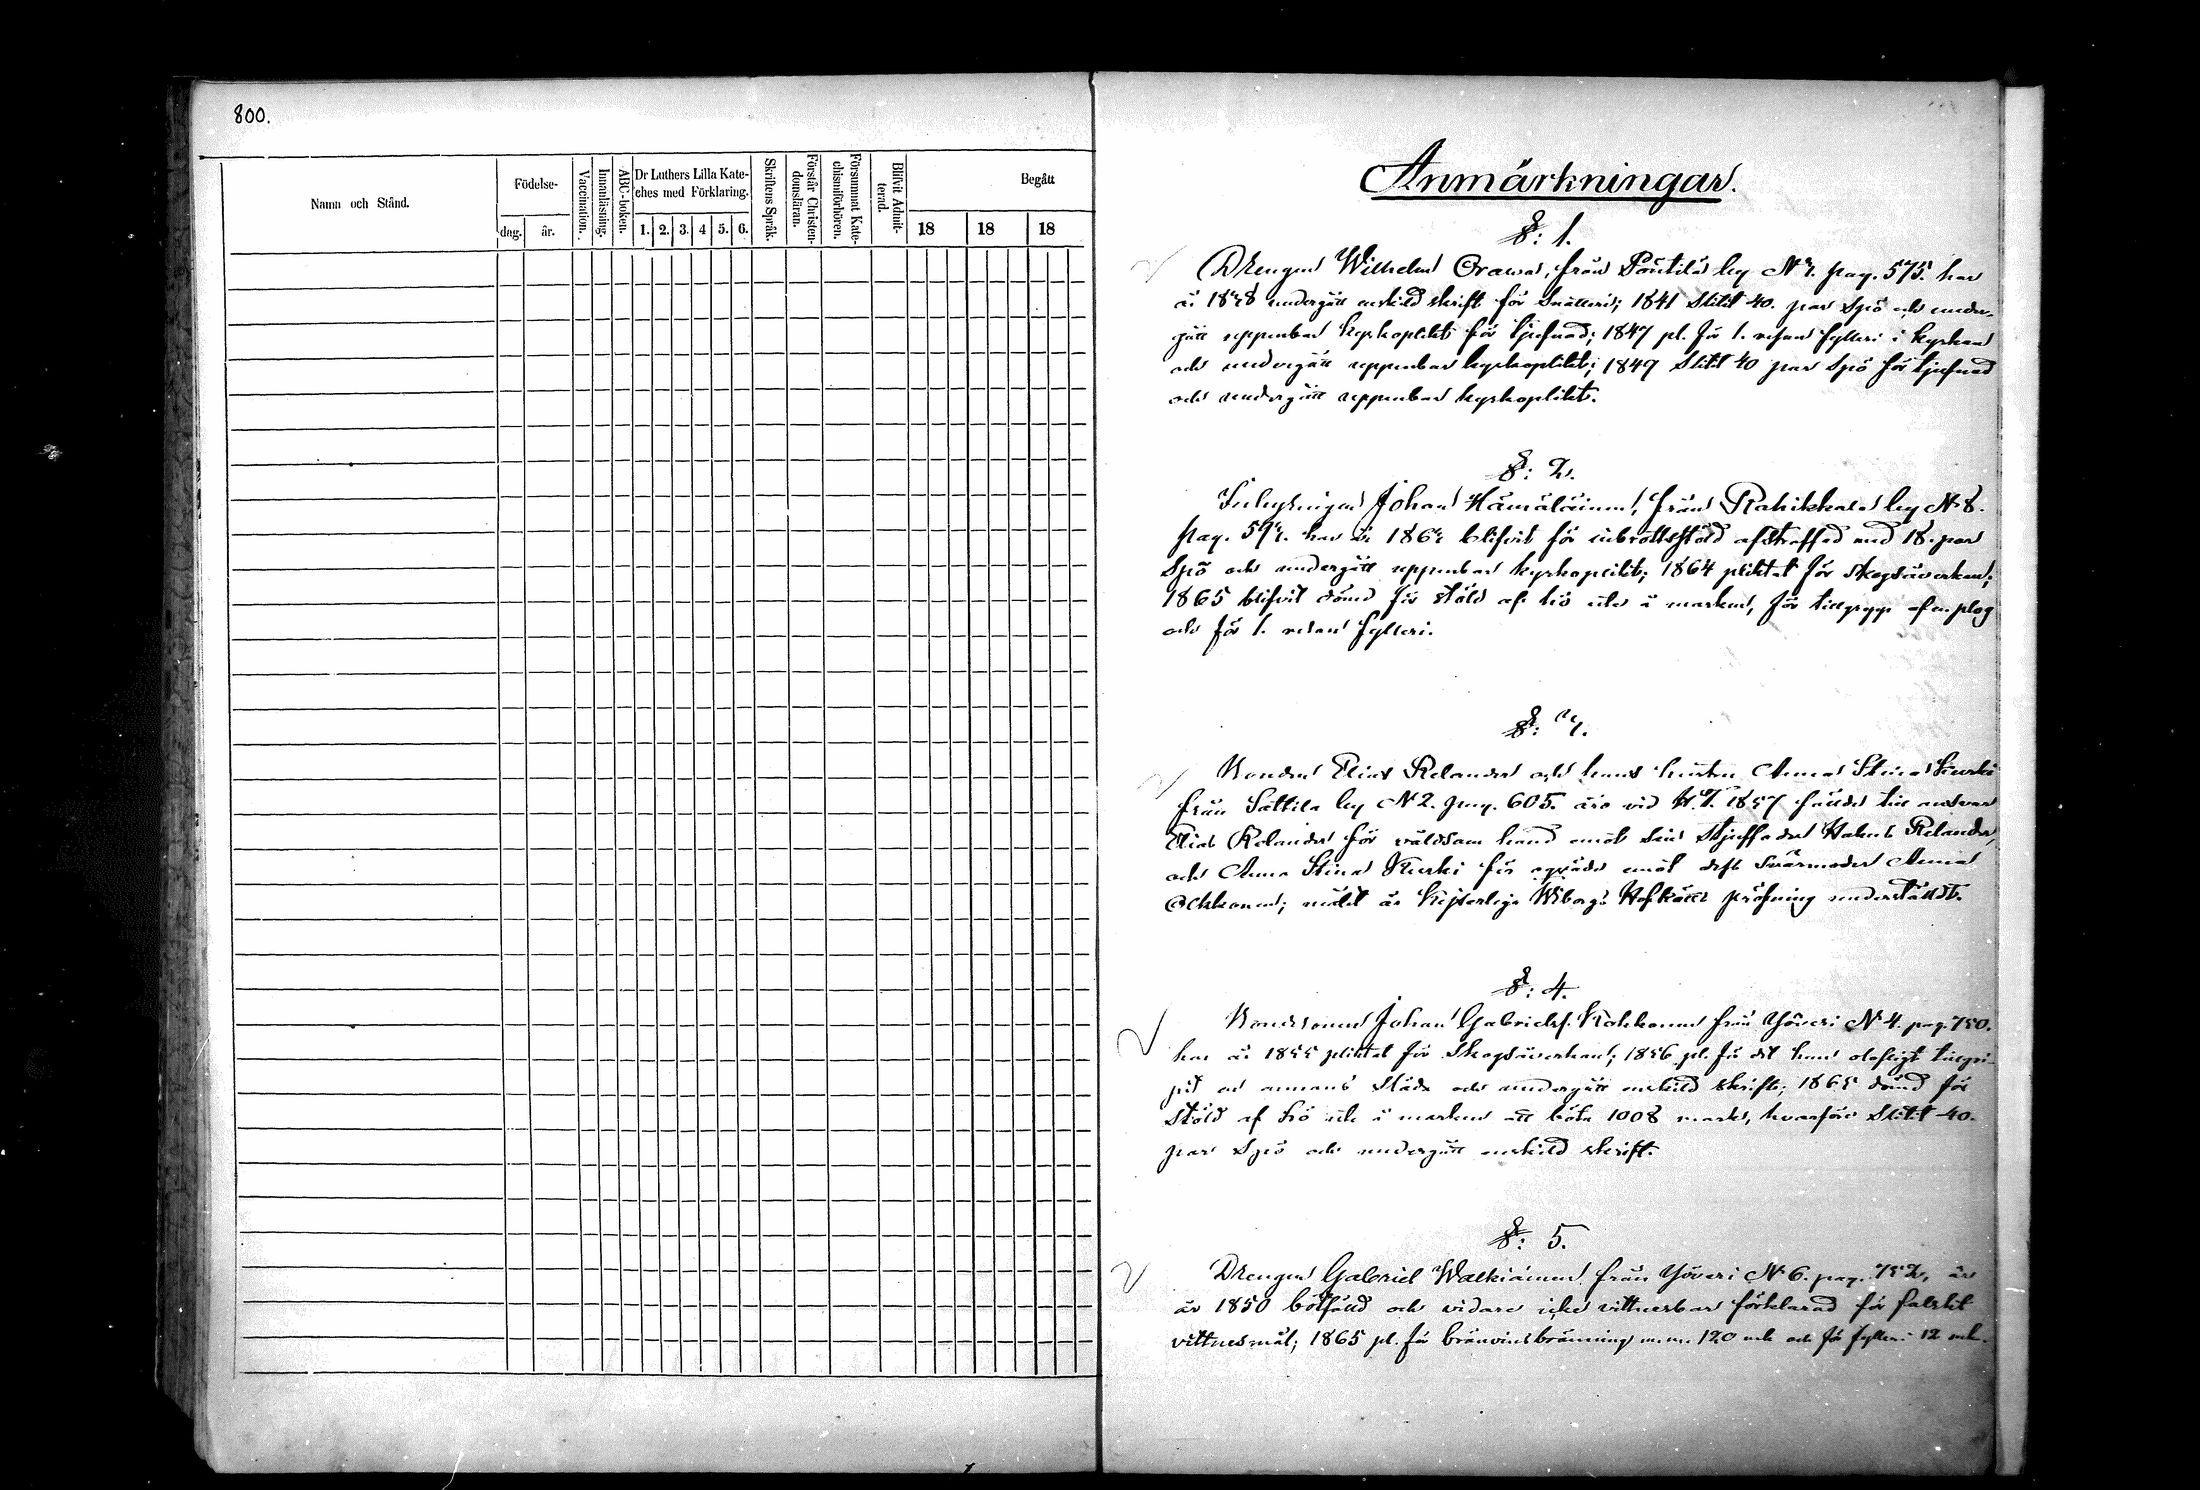 800.
Namn och Stånd.
Födelse-
dag.
år.
Vaccination.
Innanläsning.
ABC-boken.
Dr Luthers Lilla Kate-
ches med Förklaring.
1. 2. 3. 4 5. 6.
Skriftens Språk.
Förstår Christen-
domsläran.
Försummat Kate-
chismiförhören.
Blifvit Admit-
terad.
Begått
18 18 18
Anmärkningar.
§: 1.
Drengen Wilhelm Orawa, från by N 3. pag. 575. har
år 1838 undergått enskild skrift för 1841 slitit 40. par spö och under-
gått uppenbar kyrkoplikt för tjufnad; 1847 pl. för 1. resan fylleri i kyrkan
och undergått uppenbar kyrkoplikt; 1849 slitit 40 par spö för tjufnad
och undergått uppenbar kyrkoplikt.
§: 2.
Inhysingen Johan Hämäläinen, från Rahikkala by N 8.
pag. 593. har år 1863 blifvit för inbrottsstöld afstraffad med 18. par
spö och undergått uppenbar kyrkoplikt; 1864 pliktat för skogsåverkan;
1865 blifvit dömd för stöld af hö ute å marken, för tillgrepp af en plog
och för 1. resan fylleri.
§: 3.
Bonden Elias Relander och hans hustru Anna Stina Kurki
från Sattila by N 2. pag. 605. äro vid H.T. 1857 fällde till ansvar
Elias Relander för våldsam hand emot sin styffader Relander,
och Anna Stina Kurki för oqväde emot dess svärmoder Anna
målet är Kejserliga Wiborgs Hofrätts pröfning underställdt.
§: 4.
Bondsonen Johan Gabrielsf. Kohkonen från Yöveri N 4. pag. 750.
har år 1855 pliktat för skogsåverkan; 1856 pl. för det han olofligt tillgri-
pit en annans och undergått enskild skrift; 1865 dömd för
stöld af hö ute å marken att böta 1008 mark, hvarföre slitit 40.
par spö och undergått enskild skrift.
§: 5.
Drengen Gabriel Walkiainen från Yöveri N 6. pag. 752, är
år 1850 botfälld och vidare icke vittnesbar förklarad för falskt
vittnesmål; 1865 pl. för bränvinsbränning m.m. 120 mk och för fylleri 12 mk.